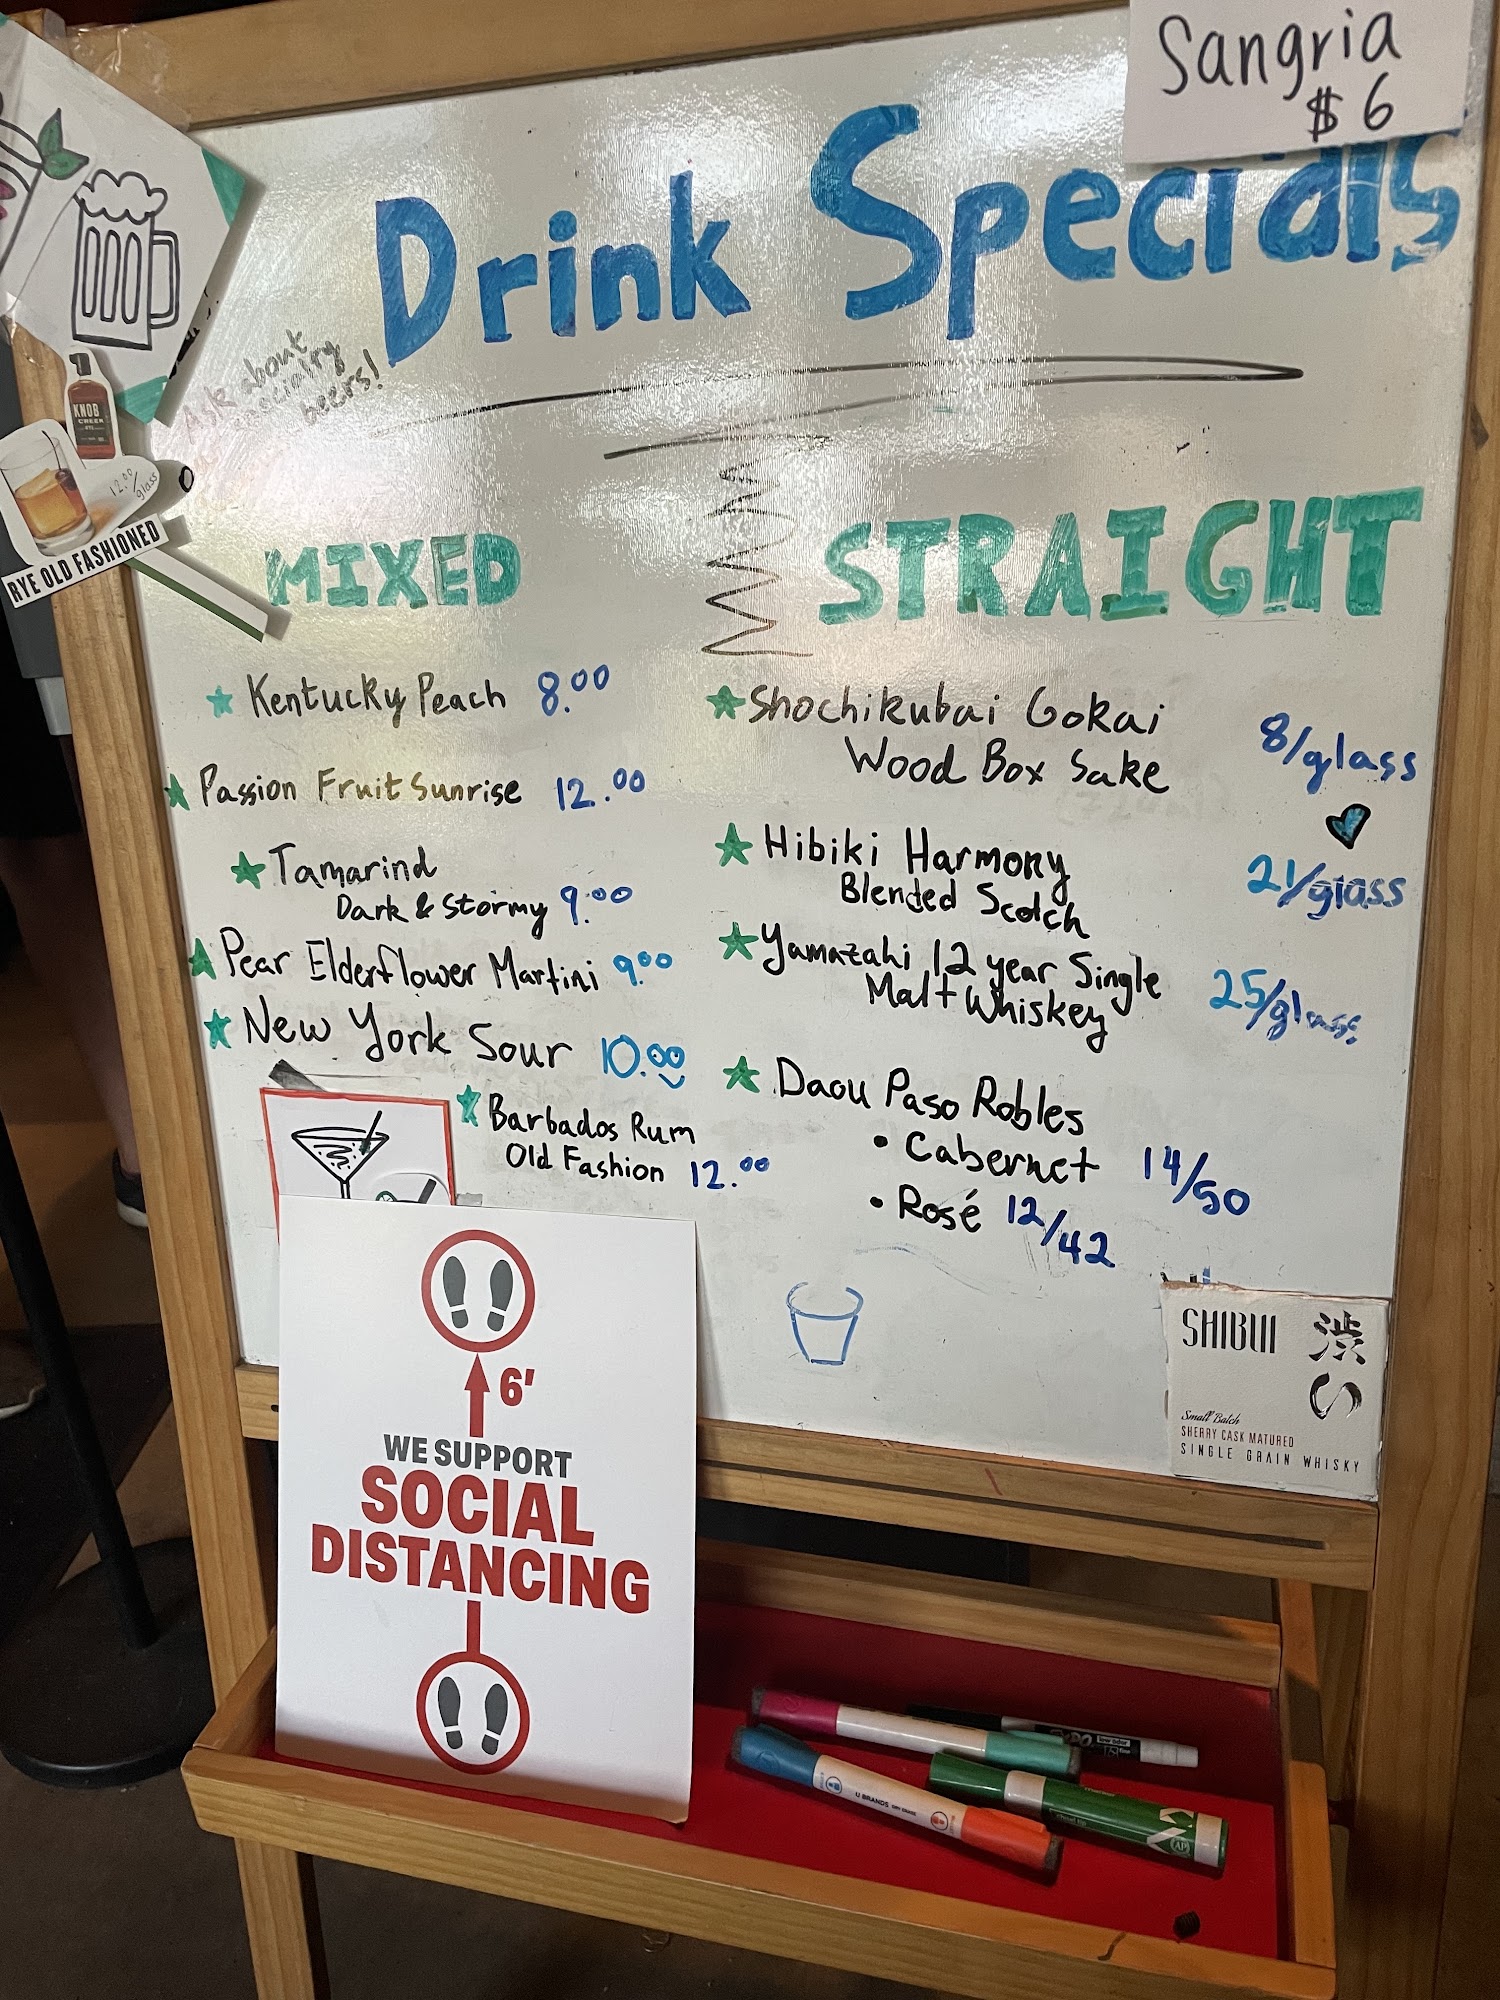 Sangria
$6
Drink Specials
Ask about
beers!
KNOB
CREEK
12.00/glass
RYE OLD FASHIONED
MIXED
Kentucky Peach 8.00
Passion Fruit Sunrise 12.00
Tamarind
Dark & Stormy 9.00
Pear Elderflower Martini 9.00
New York Sour 10.00
Barbados Rum
Old Fashion 12.00
STRAIGHT
Shochikubai Gokai
Wood Box Sake 8/glass
Hibiki Harmony
Blended Scotch 21/glass
Yamazaki 12 year Single
Malt Whiskey 25/glass
Daou Paso Robles
• Cabernet 14/50
• Rosé 12/42
SHIBUI 渋
Small Batch
SHERRY CASK MATURED
SINGLE GRAIN WHISKY
6'
WE SUPPORT
SOCIAL
DISTANCING
EXPO low odor
U BRANDS
AP